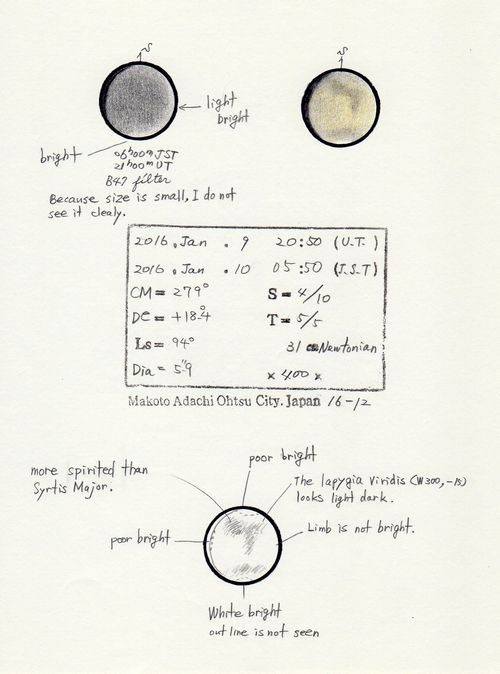 S
S
light
bright
bright
06h00m JST
21h00m UT
B47 filter
Because size is small, I do not
see it clealy.
2016. Jan. 9 20:50 (U.T.)
2016. Jan. 10 05:50 (J.S.T)
CM= 279° S= 4/10
DE= +18.°4 T= 5/5
Ls= 94° 31 cm Newtonian
Dia= 5".9 × 400 ×
Makoto Adachi Ohtsu City. Japan 16-12
poor bright
more spirited than
Syrtis Major.
The Iapygia Viridis (W300, -15)
looks light dark.
poor bright
Limb is not bright.
White bright
out line is not seen